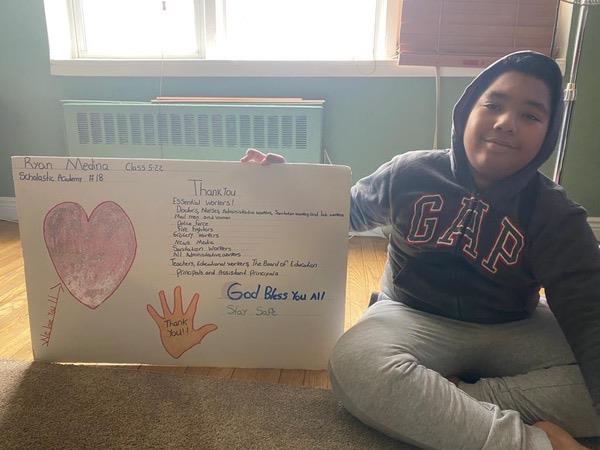 Ryan Medina Class 5-22
Scholastic Academy #18
Thank You
Essential workers!
Doctors, Nurses, Administrative workers, Sanitation workers, and lab workers
Mail men and women
Police force
Fire fighters
Grocery workers
News Media
Sanitation workers
All Administrative workers
Teachers, Educational workers, The Board of Education
Principals and Assistant Principals
God Bless You All
Stay Safe
Thank
You!!
GAP